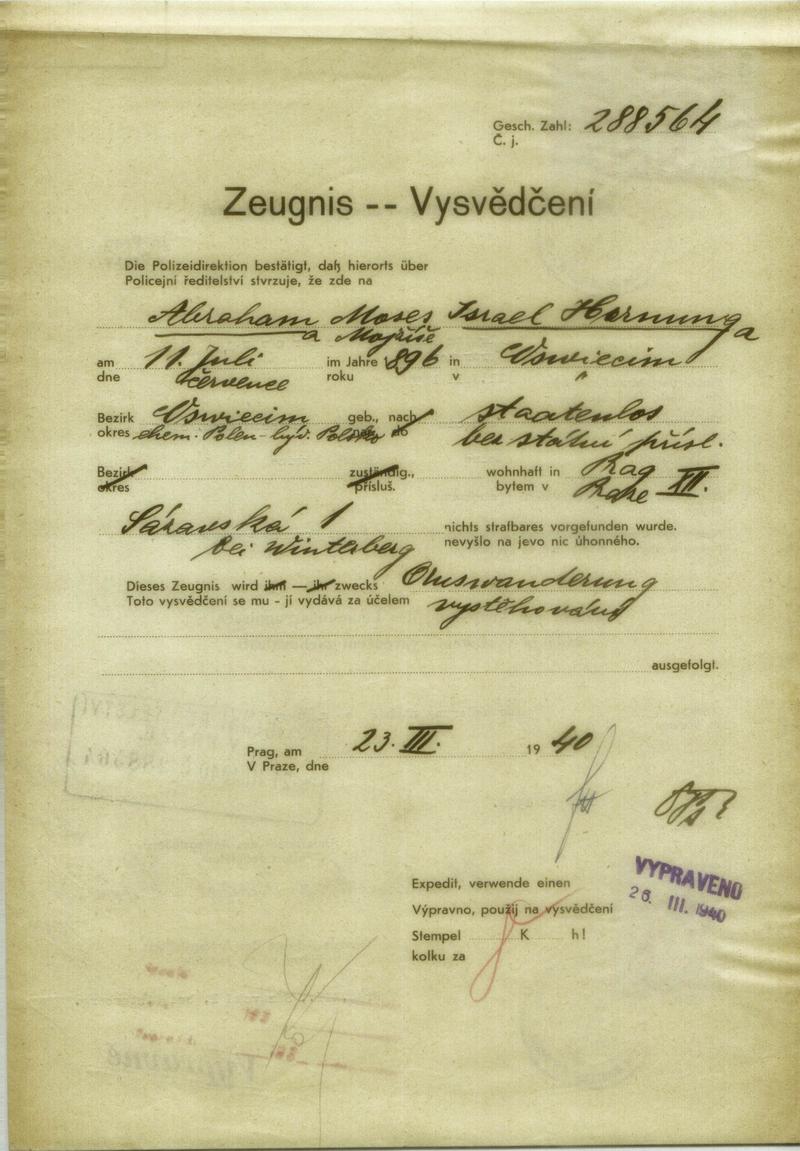 Gesch. Zahl: 288564
Č. j.
Zeugnis -- Vysvědčení
Die Polizeidirektion bestätigt, daß hierorts über
Policejní ředitelství stvrzuje, že zde na
Abraham Moses Israel Hornung a
a Mojžíše
am 11. Juli im Jahre 1896 in Oswiecim
dne července roku v "
Bezirk Oswiecim geb., nach staatenlos
okres ehem. Polen - býv. Polsko do bez státní přísl.
Bezirk zuständig., wohnhaft in Prag XII.
okres přísluš. bytem v Praze
Sázavská 1 nichts strafbares vorgefunden wurde.
bei Winterberg nevyšlo na jevo nic úhonného.
Dieses Zeugnis wird ihm — ihr zwecks Auswanderung
Toto vysvědčení se mu - jí vydává za účelem vystěhování
ausgefolgt.
Prag, am 23. III. 1940
V Praze, dne
Expedit, verwende einen
Výpravno, použij na vysvědčení
Stempel K h!
kolku za
VYPRAVENO
26. III. 1940